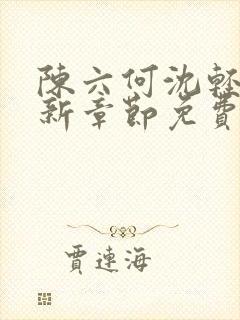 陳六何沈輕
新章節免費
賈連海